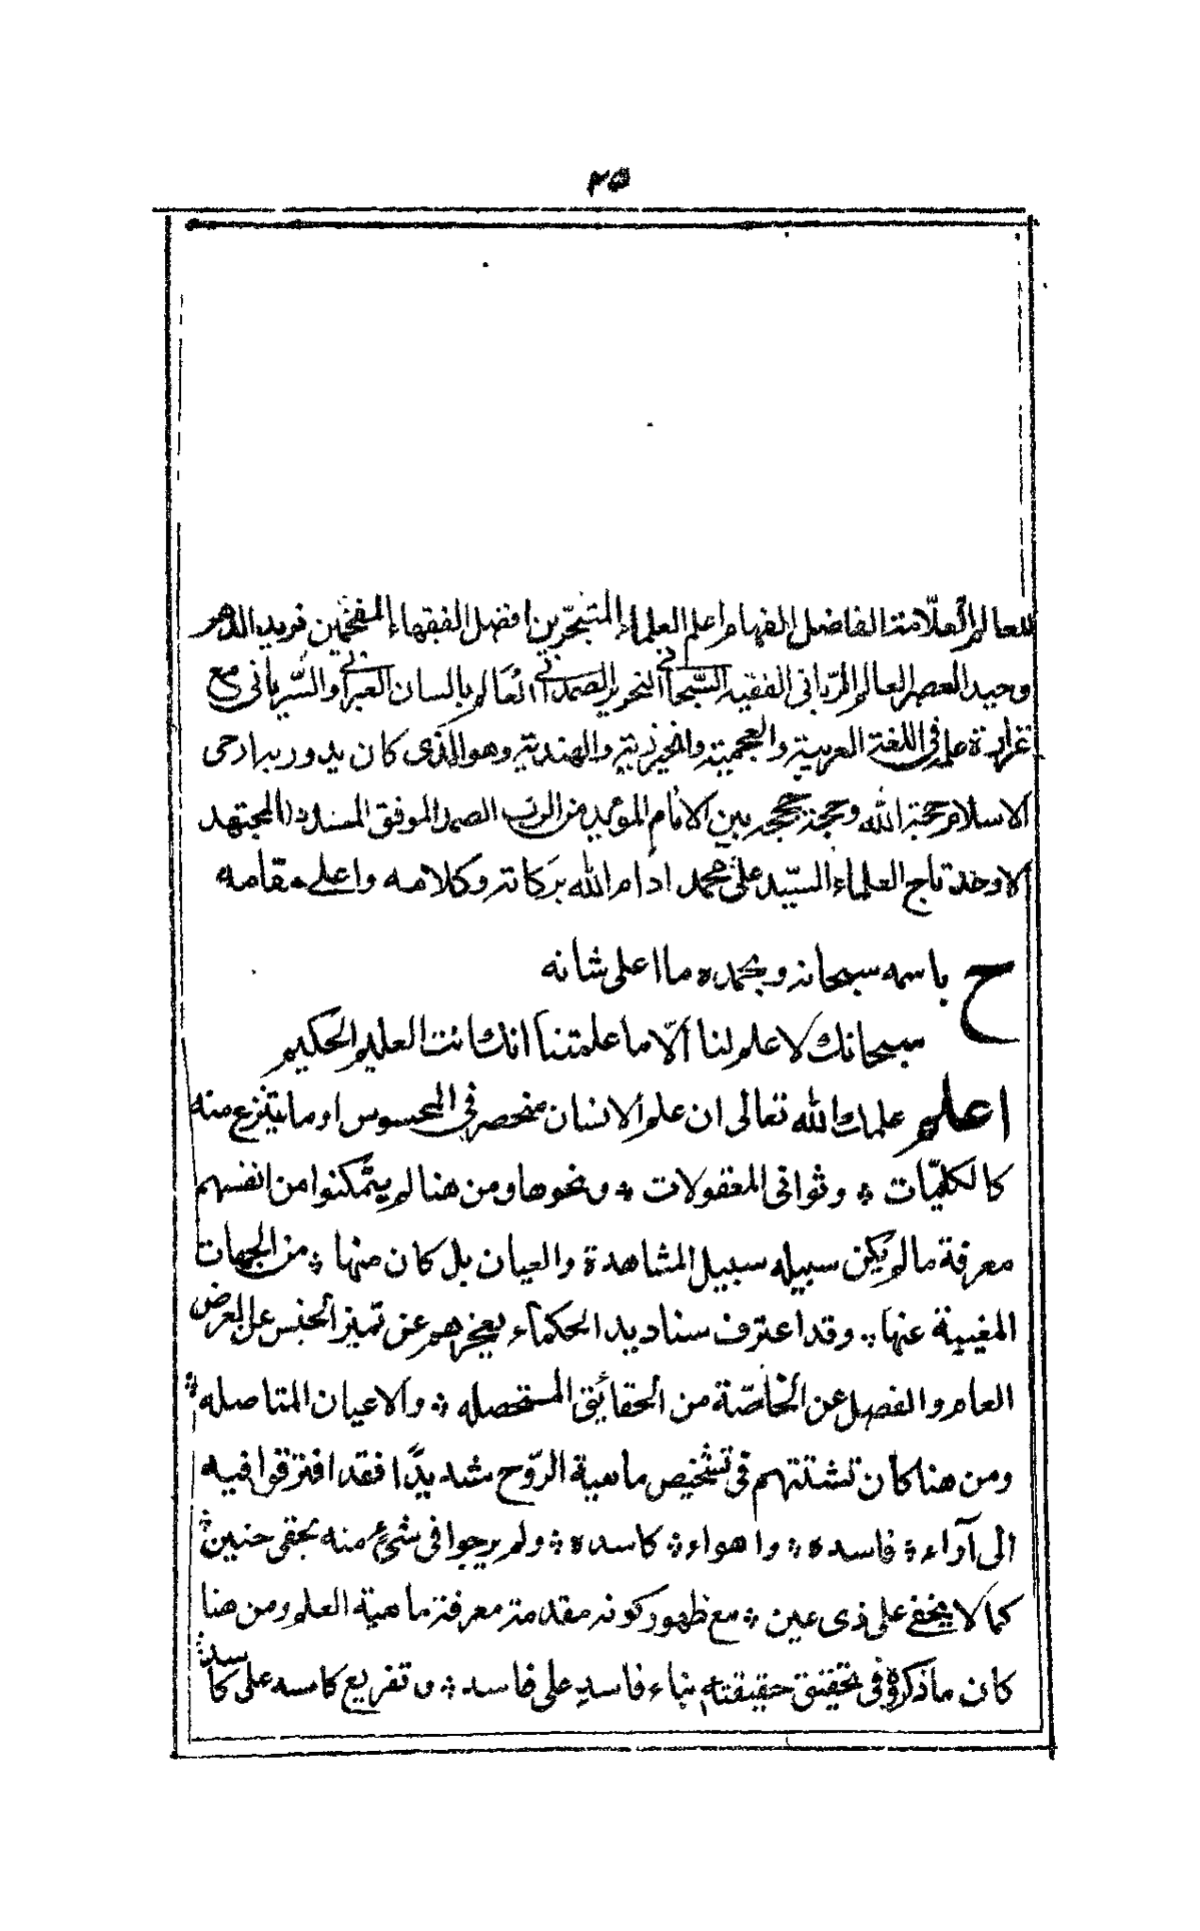 ٢٥
للعالم العلامة الفاضل الفهام اعلم العلماء المتبحّرين افضل الفقهاء المفخمين فريد الدهر
وحيد العصر العالم الرّبانى الفقيه السّبحانى النحرير الصمدانى العالم بالسان العبرانى والسّريانى مع
غزارة علمه فى اللغة العربية والعجمية والهندية وهو الذى كان يدور به ارحى
الاسلام حجة الله وحججه بين الانام المؤيد من الرب الصمد الموفق المسدد المجتهد
الاوحد تاج العلماء السيّد على محمد ادام الله بركاته وكلامه واعلى مقامه
ح باسمه سبحانه وبحمده ما اعلى شانه
سبحانك لا علم لنا الّا ما علمتنا انك انت العليم الحكيم
اعلم علمك الله تعالى ان علم الانسان منحصر فى المحسوس او ما ينتزع منه
كالكليّات ؞ وثوانى المعقولات ؞ ونحوها ومن هنا لم يتمكنوا من انفسهم
معرفة ما لم يكن سبيله سبيل المشاهدة والعيان بل كان منها ؞ من الجهات
المغيبة عنها ؞ وقد اعترف سناديد الحكماء بعجزهم عن تميز الجنس عن العرض
العام والفصل عن الخاصّة من الحقائق المستحصله ؞ والاعيان المتاصله ؞
ومن هنا كان تشتتهم فى تشخيص ماهية الرّوح شديدًا فقد افترقوا فيه
الى آراء ؞ فاسده ؞ واهواء ؞ كاسده ؞ ولم يرجوا فى شئ منه بخفى حنين ؞
كما لا يخفى على ذى عين ؞ مع ظهور كونه مقدمة معرفة ماهية العلم ومن هنا
كان ما ذكروه فى تحقيق حقيقته بناء فاسد على فاسد ؞ وتفريع كاسه على كاسد ؞